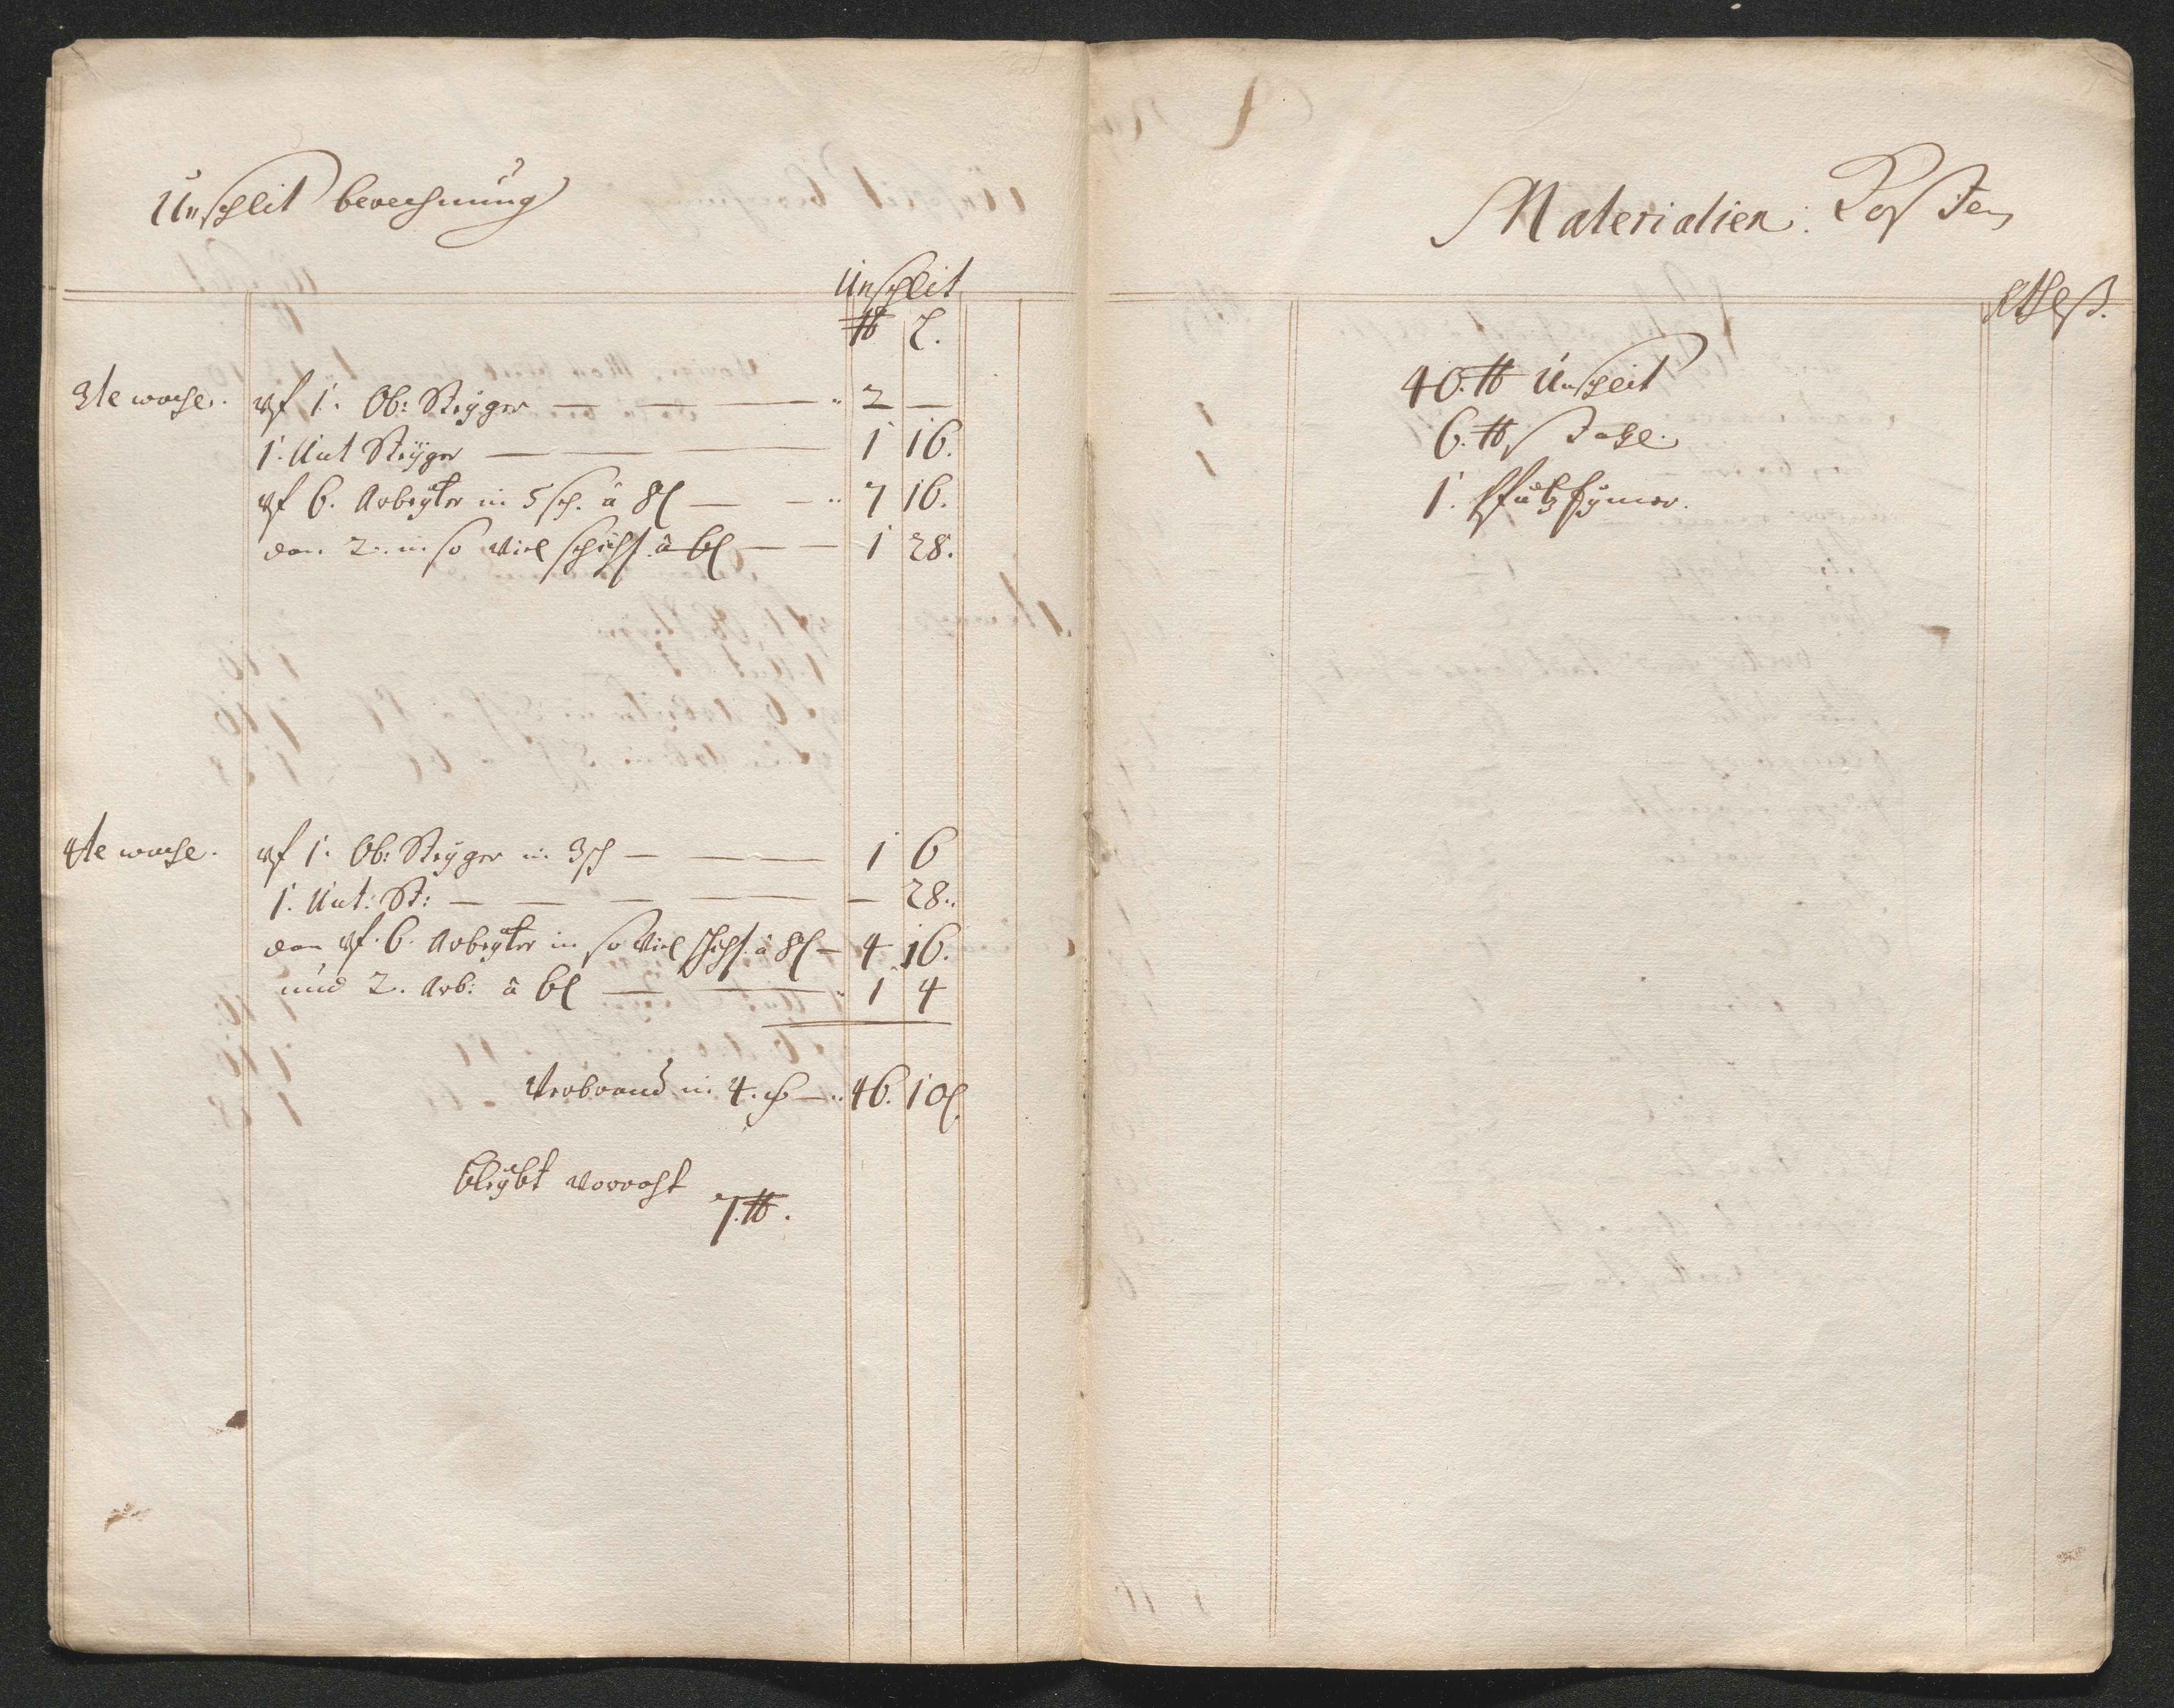 Unschlit berechnung
Unschlit
℔ L.
3te woche. vf 1. Ob: Steyger — — — 2 —
1. Unt Steyger — — — 1 16.
vf 6. Arbeyter in 5 sch. â 8 l — — 7 16.
dan 2. in so viel schicht. â 6 l — — 1 28.
4te woche. vf 1. Ob: Steyger in 3 sch — — — 1 6
1. Unt: St: — — — — — 28.
dan vf. 6. Arbeyter in so viel schicht. â 8 l — 4 16.
und 2. Arb: â 6 l — — 1 4
Verbrand in 4. — 46. 10 l
bleybt vorraht
7. ℔.
Materialien: Kosten
40. ℔ Unschlit
6. ℔ Stahl.
1. Pfützeymer.